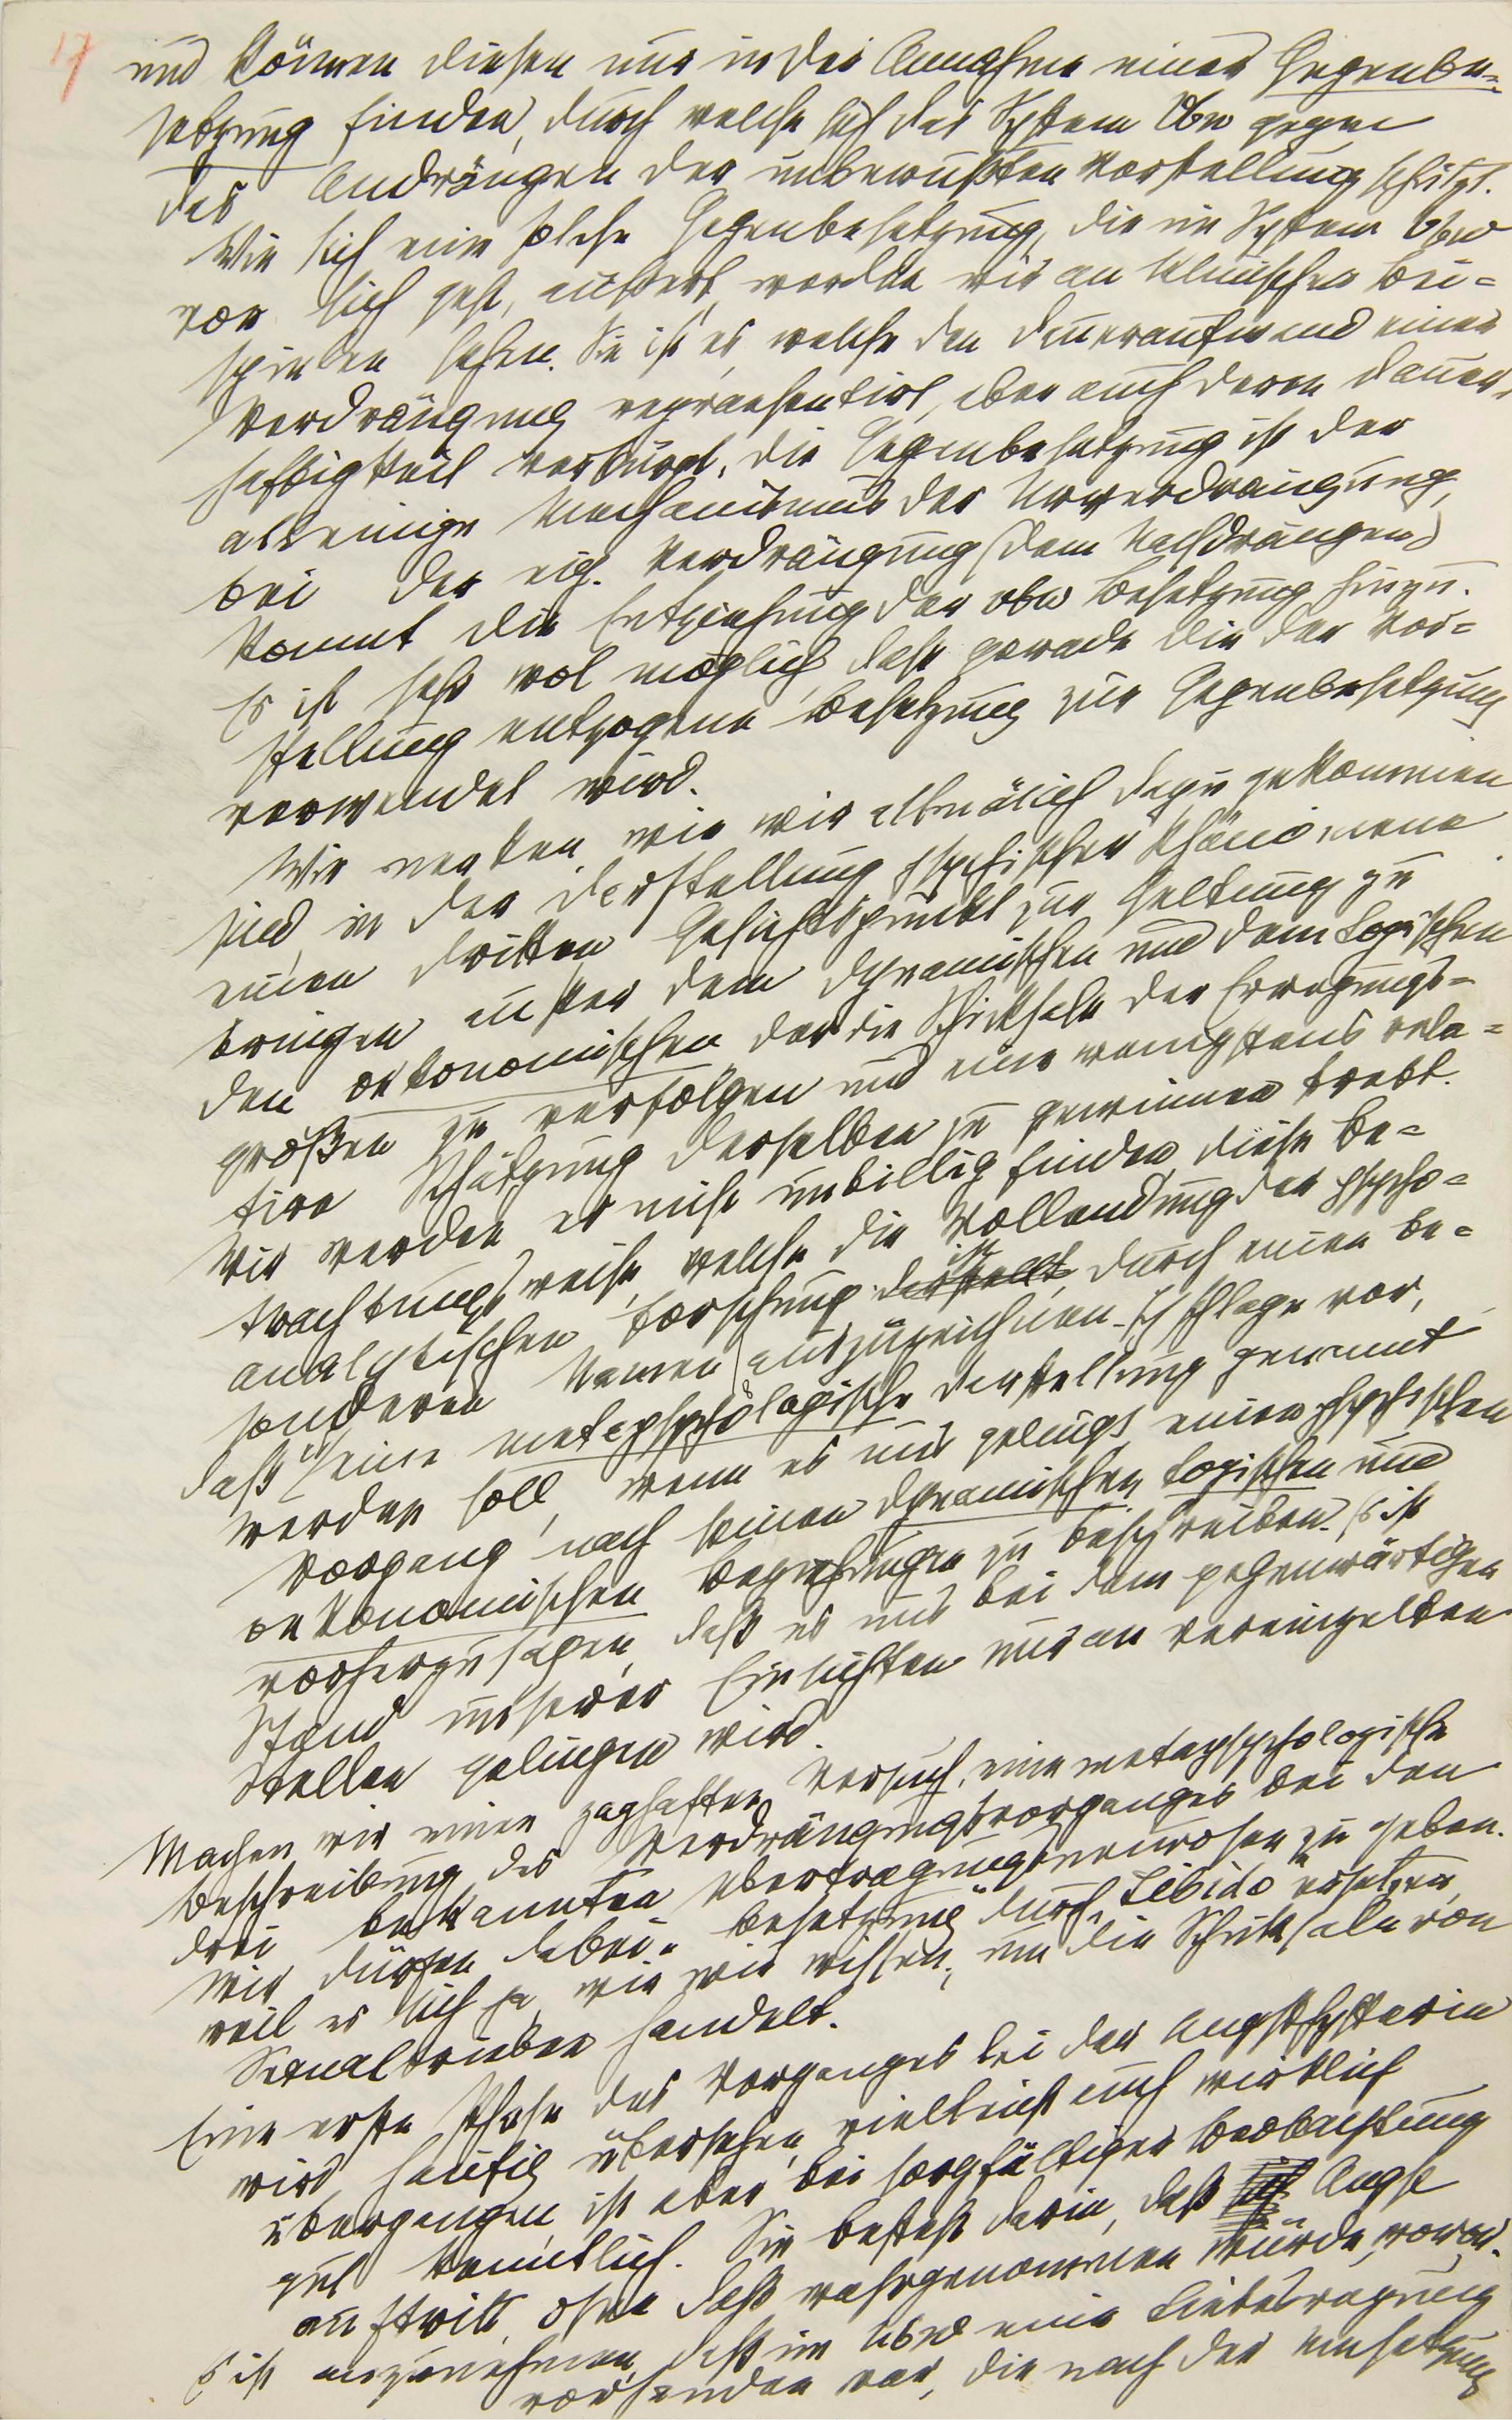 17
und können diesen nur in der Annahme einer Gegenbe=
setzung finden, durch welche sich das System Vbw gegen
das Andrängen der unbewußten Vorstellung schützt.
Wie sich eine solche Gegenbesetzung, die im System Vbw
vor sich geht, äußert, werden wir an klinischen Bei=
spielen sehen. Sie ist es, welche den Daueraufwand einer
Verdrängung repraesentirt, aber auch deren Dauer=
haftigkeit verbürgt. Die Gegenbesetzung ist der
alleinige Mechanismus der Urverdrängung,
bei der eig. Verdrängung (dem Nachdrängen)
kommt die Entziehung der vbw Besetzung hinzu.
Es ist sehr wol möglich, daß gerade die der Vor=
stellung entzogene Besetzung zur Gegenbesetzung
verwendet wird.
Wir merken, wie wir allmälich dazu gekommen
sind, in der Darstellung psychischer Phänomene
einen dritten Gesichtspunkt zur Geltung zu
bringen außer dem dynamischen und dem topischen
den oekonomischen, der die Schicksale der Erregungs=
größen zu verfolgen und eine wenigstens rela=
tive Schätzung derselben zu gewinnen strebt.
Wir werden es nicht unbillig finden, diese Be=
trachtungsweise, welche die Vollendung der psycho=
analytischen Forschung darstellt ist, durch einen be=
sonderen Namen auszuzeichnen. Ich schlage vor,
daß es eine metapsychologische Darstellung genannt
werden soll, wenn es uns gelingt, einen psychischen
Vorgang nach seinen dynamischen, topischen und
oekonomischen Beziehungen zu beschreiben. Es ist
vorherzusagen, daß es uns bei dem gegenwärtigen
Stand unserer Einsichten nur an vereinzelten
Stellen gelingen wird.
Machen wir einen zaghaften Versuch, eine metapsychologische
Beschreibung des Verdrängungsvorganges bei den
drei bekannten Übertragungsneurosen zu geben.
Wir dürfen dabei „Besetzung" durch „Libido" ersetzen,
weil es sich ja, wie wir wissen, um die Schicksale von
Sexualtrieben handelt.
Eine erste Phase des Vorganges bei der Angsthysterie
wird häufig übersehen, vielleicht auch wirklich
übergangen, ist aber bei sorgfältiger Beobachtung
gut kenntlich. Sie besteht darin, daß Angst
auftritt, ohne daß wahrgenommen würde, wovor.
Es ist anzunehmen, daß im Ubw eine Liebesregung
vorhanden war, die nach der Umsetzung